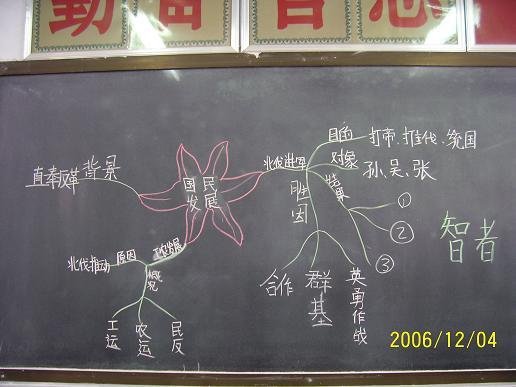 目的
打帝、
统国
对象
孙、吴、张
北伐进军
背景
直奉反革
国民
发展
胜因
结果
①
②
③
智者
原因
北伐推动
概况
合作
群基
英勇作战
工运
农运
民反
2006/12/04